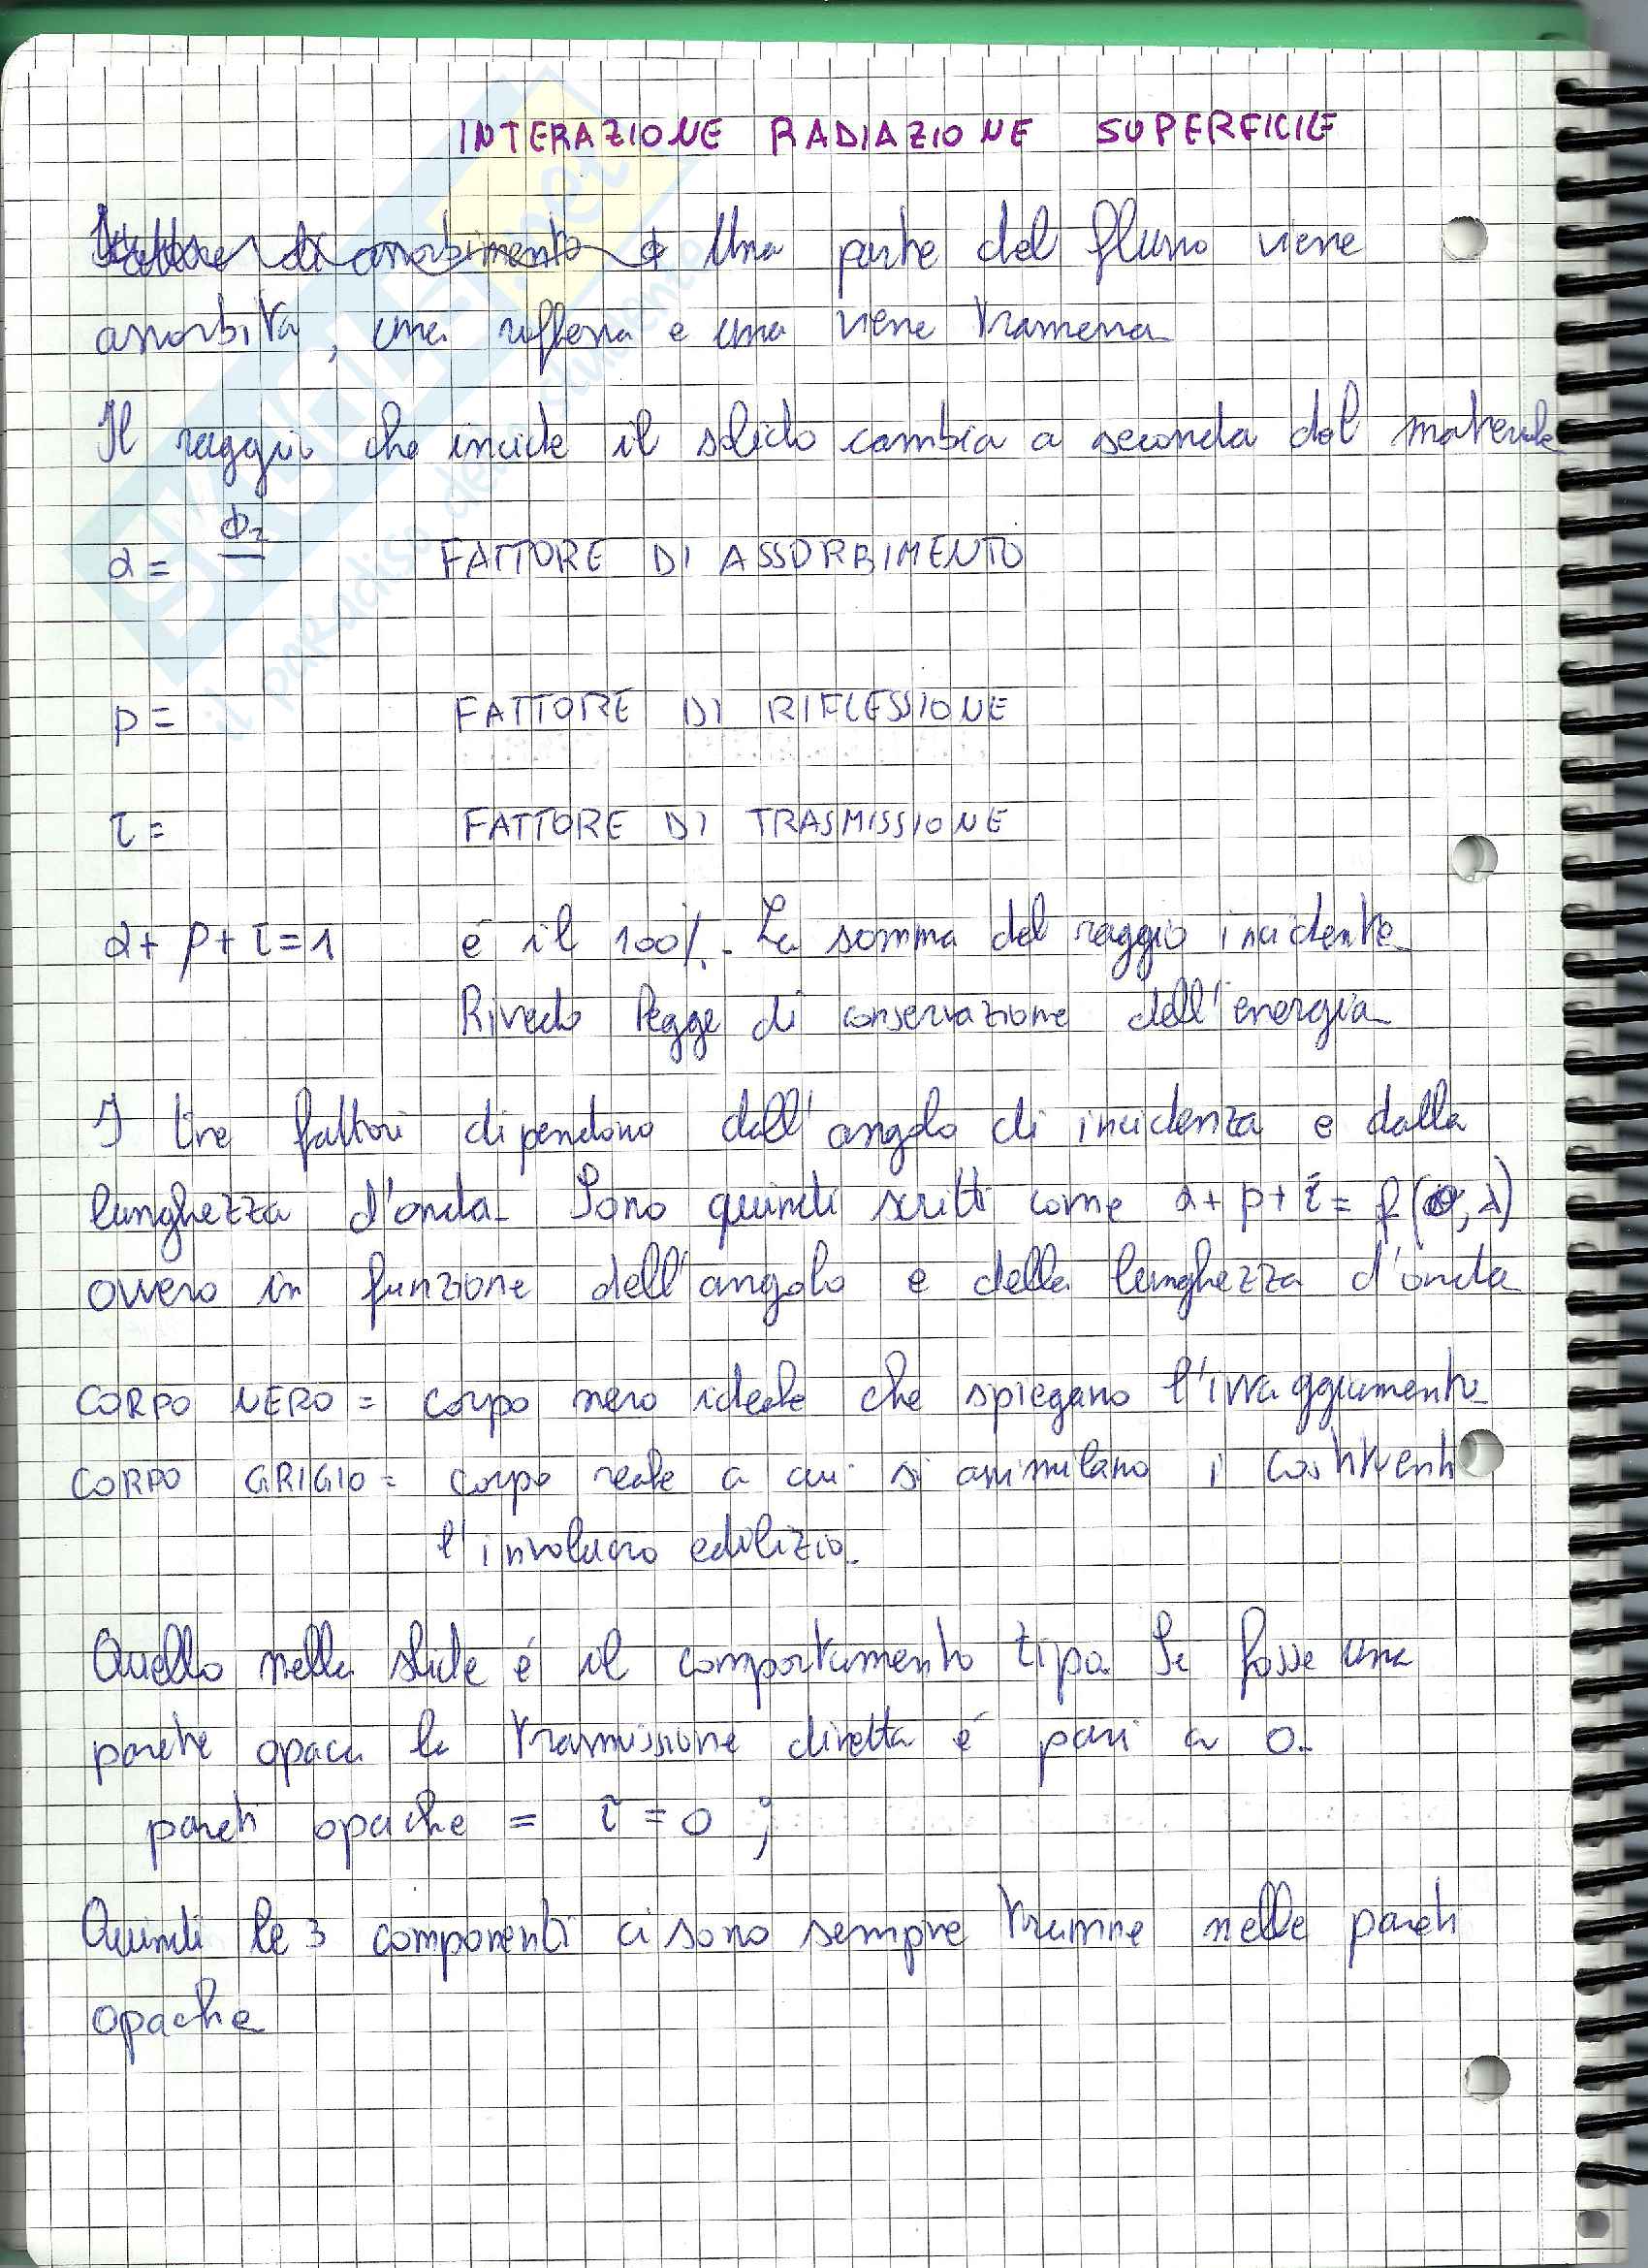 INTERAZIONE RADIAZIONE SUPERFICIE
Fattore di assorbimento Una parte del flusso viene
assorbita, una riflessa e una viene trasmessa
Il raggio che incide il solido cambia a seconda del materiale
α = Φ₂ FATTORE DI ASSORBIMENTO
ρ = FATTORE DI RIFLESSIONE
τ = FATTORE DI TRASMISSIONE
α + ρ + τ = 1 é il 100%. La somma del raggio incidente
Rivedo legge di conservazione dell'energia
I tre fattori dipendono dall'angolo di incidenza e dalla
lunghezza d'onda. Sono quindi scritti come α + ρ + τ = f(θ, λ)
ovvero in funzione dell'angolo e della lunghezza d'onda
CORPO NERO = corpo nero ideale che spiegano l'irraggiamento
CORPO GRIGIO = corpo reale a cui si assimilano i costituenti
l'involucro edilizio.
Quello nella slide é il comportamento tipo. Se fosse una
parete opaca la trasmissione diretta é pari a 0.
pareti opache = τ = 0 ;
Quindi le 3 componenti ci sono sempre tranne nelle pareti
opache
il paradiso dello studente